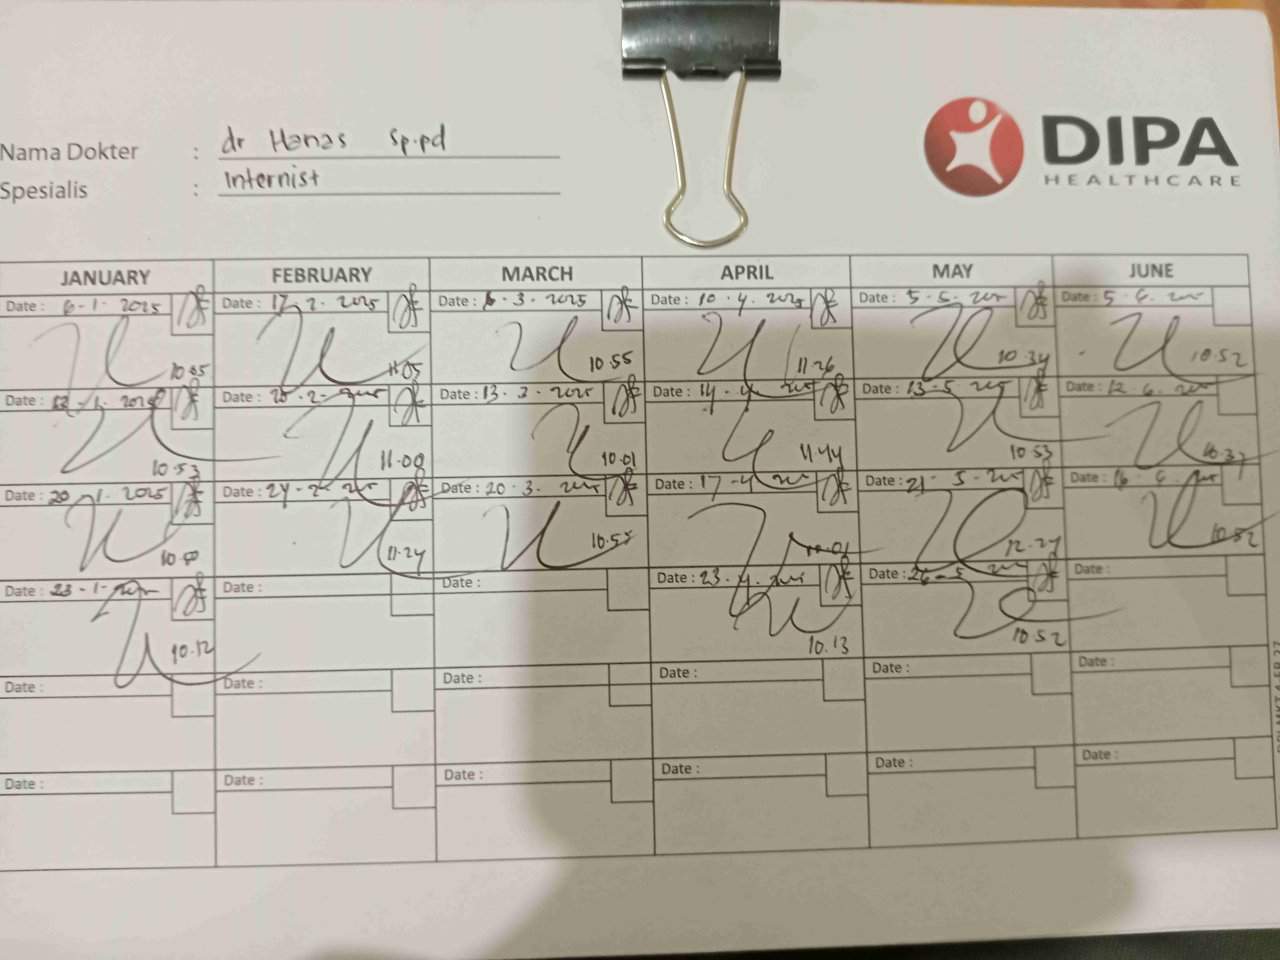 Nama Dokter : dr Hanas Sp.pd
Spesialis : Internist
DIPA
HEALTHCARE
JANUARY FEBRUARY MARCH APRIL MAY JUNE
Date : 6-1-2025 Date : 17-2-2025 Date : 6-3-2025 Date : 10-4-2025 Date : 5-5- Date : 5-6-
10.55 10.34 10.52
11.05 11.26
Date : -1-2025 Date : -2- Date : 13-3-2025 Date : 14-4- Date : 13-5- Date : 12-6-
10.53 11.00 10.01 11.44 10.53
Date : 20-1-2025 Date : 24-2- Date : 20-3- Date : 17-4- Date : 21-5- Date : 16-6-
11.24 12.27 10.52
Date : 23-1- Date : Date : Date : 23-4- Date : 26-5- Date :
10.12 10.13 10.52
Date : Date : Date : Date : Date : Date :
Date : Date : Date : Date : Date : Date :